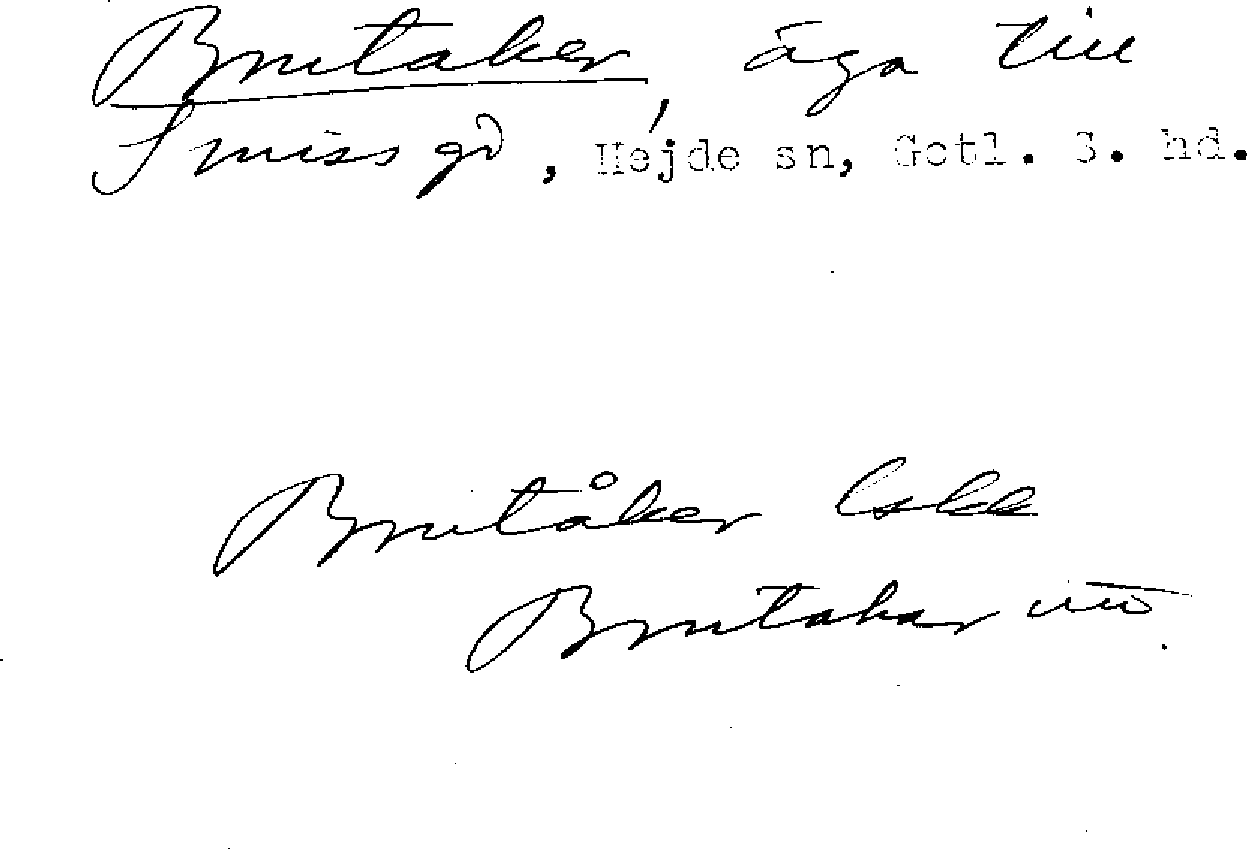 Brutaker, äga till
Smiss gd, Hejde sn, Gotl. S. hd.
Brutåker Lskk
Brutakar